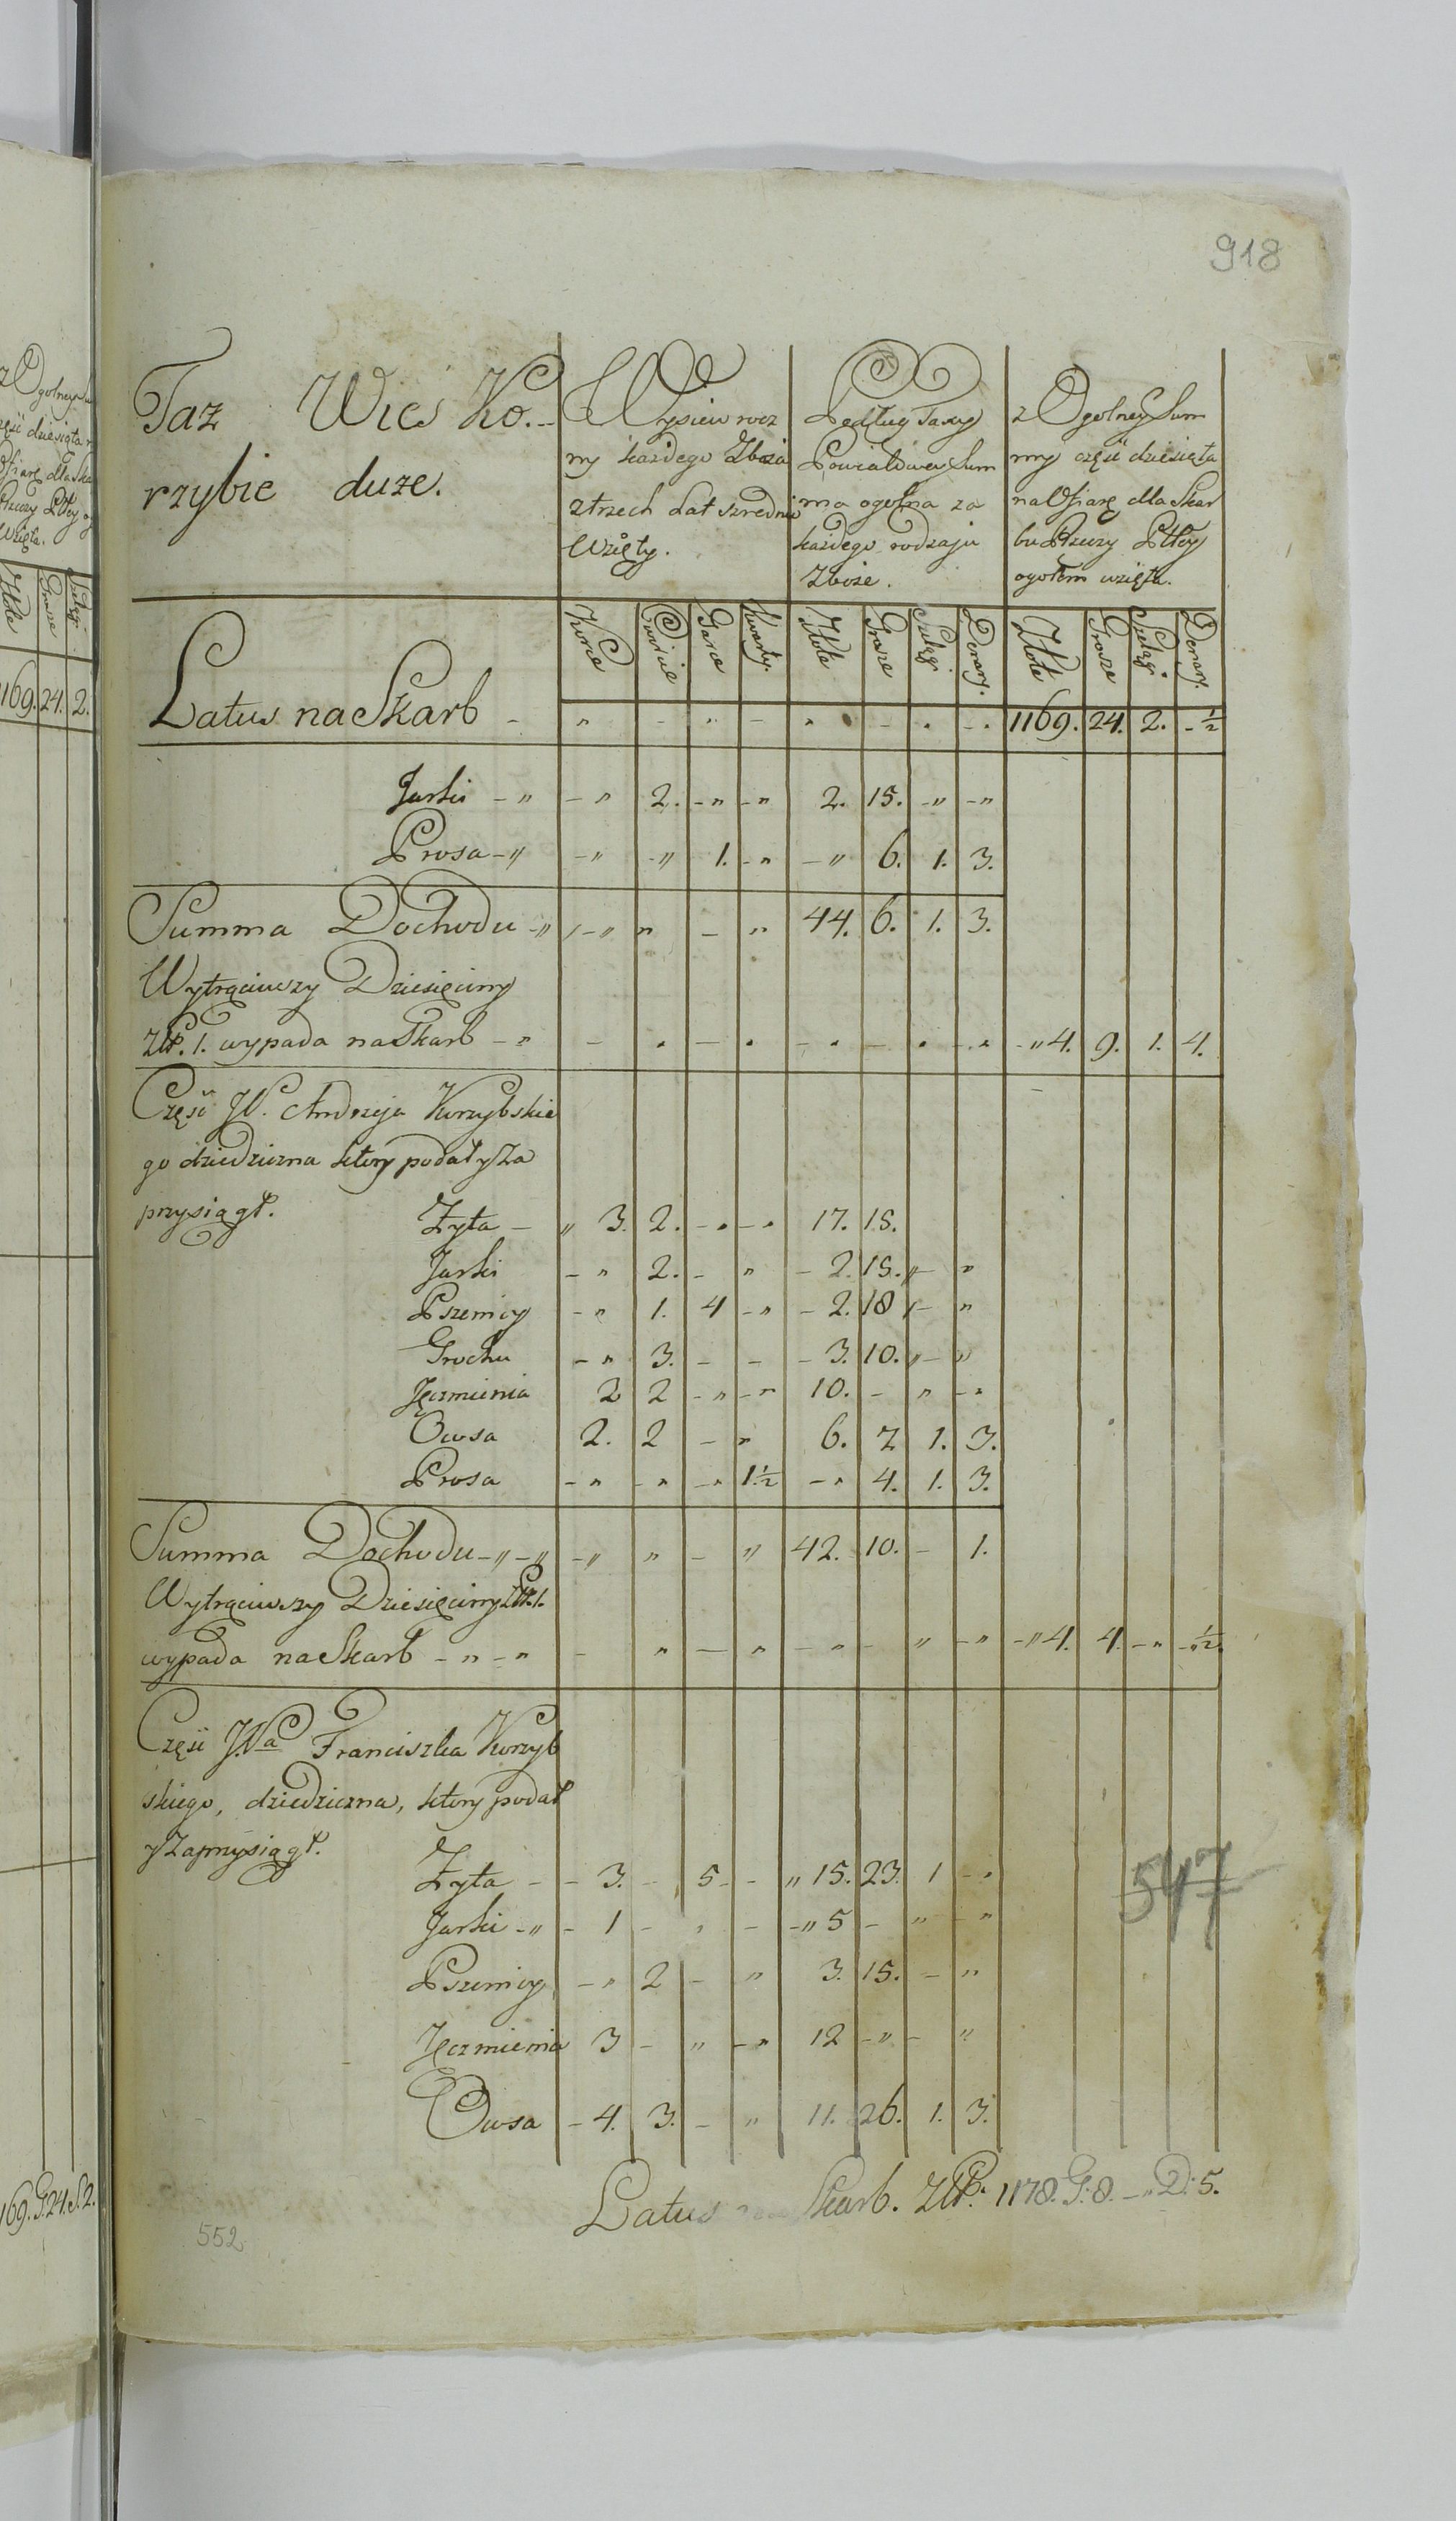 918
Taz Wies Ko..
rzybie duze.
Wysiew rocz
ny kazdego Zboza
z trzech Lat szrednio
Wzięty.
Podług Taxy
Powiatowey Sum
ma ogolna za
kazdego rodzaju
Zboze.
z Ogolney Sum
my częsć dziesięta
na Ofiarę dla Skar
bu Rzeczy Pltey
ogołem wzięta.
Korce Cwircie Garce Kwarty. Złote Grosze Szeląg. Denary. Złote Grosze Szeląg. Denary.
Latus na Skarb - „ - „ - „ - „ - „ 1169. 24. 2. - ½
Jarki - „ - „ 2. - „ - „ 2. 15. - „ - „
Prosa - „ - „ - „ 1. - „ - „ 6. 1. 3.
Summa Dochodu - „ - „ „ - „ 44. 6. 1. 3.
Wytrąciwszy Dziesięciny
ZłP. 1. wypada na Skarb - „ - „ 4. 9. 1. 4.
Częsć JP. Andrzeja Korzybskie
go dziedziczna ktory podał y Za
przysiągł.
Zyta - „ 3. 2. - „ - „ 17. 15.
Jarki - „ 2. - „ - 2. 15. „ - „
Pszenicy - „ 1. 4 - „ - 2. 18 - „
Grochu - „ 3. - - - 3. 10. „ - „
Jęczmienia 2 2 - „ - „ 10. - „ - „
Owsa 2. 2 - „ 6. 7 1. 3.
Prosa - „ - „ - „ 1½ - „ 4. 1. 3.
Summa Dochodu - „ - „ - „ „ - „ 42. 10. - 1.
Wytrąciwszy Dziesięciny ZłP. 1.
wypada na Skarb - „ - „ - „ - „ - „ - „ - „ - „ 4. 4. - „ - „ ½.
Częsć JPa Franciszka Korzyb
skiego, dziedziczna, ktory podał
y Zaprzysiągł.
Zyta - - 3. - 5. - „ 15. 23. 1 - „
Jarki - „ - 1 - „ - - „ 5 - „ - „
Pszenicy - „ 2 - „ 3. 15. - „
Jęczmienia 3 - „ - „ 12 - „ - „
Owsa - 4. 3. - „ 11. 26. 1. 3.
547
Latus na Skarb. ZłP. 1178. G: 8. - „ D: 5.
552